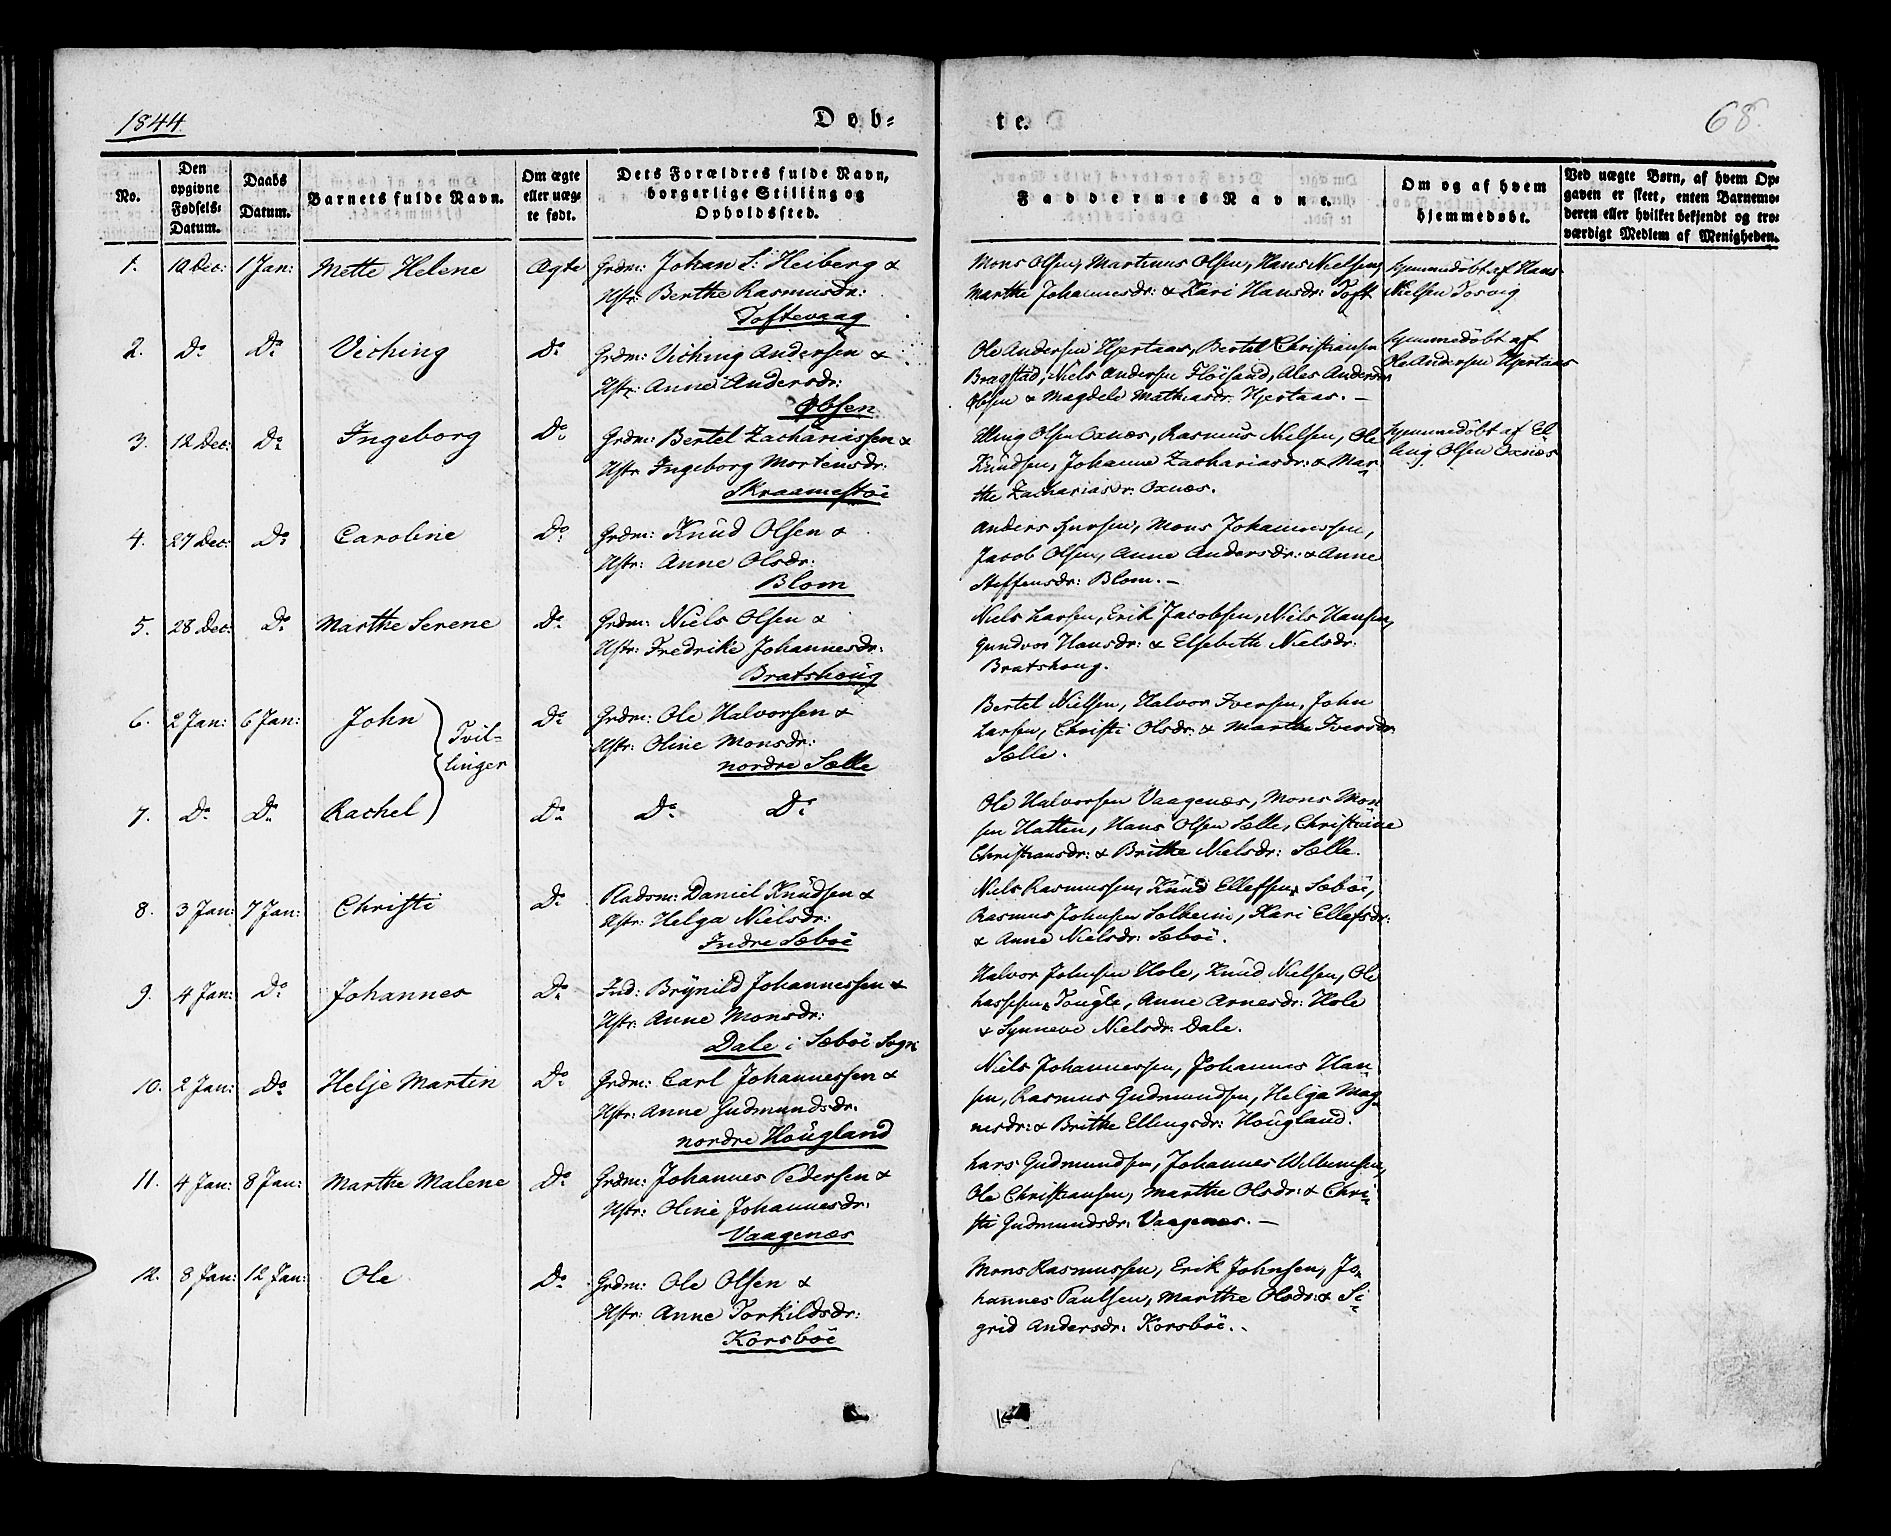 1844
Døb=
te.
68.
No.
Den opgivne Fødsels= Datum.
Daabs Datum.
Barnets fulde Navn.
Om ægte eller uæg= te født.
Dets Forældres fulde Navn, borgerlige Stilling og Opholdssted.
Faddernes Navne.
Om og af hvem hjemmedøbt.
Ved uægte Børn, af hvem Op= gaven er skeet, enten Barnemo= deren eller hvilket bekjendt og tro= værdigt Medlem af Menigheden.
1. 10 Dec: 1 Jan: Mette Helene Ægte Grdm: Johan S: Heiberg &
Hstr: Berthe Rasmusdr:
Toftevaag
Mons Olsen, Martinus Olsen, Hans Nielsen,
Marthe Johannesdr: & Kari Hansdr: Toft
Hjemmedøbt af Hans
Nielsen
2. Do Do Viching Do Grdm: Viching Andersen &
Hstr: Anne Andersdr:
Obsen
Ole Andersen Hjertaas, Bertel Christiansen
Bragstad, Niels Andersen Fløisand, Ales Andersdr
Obsen & Magdele Mathiasdr: Hjertaas. –
Hjemmedøbt af
Ole Andersen Hjertaas
3. 12 Dec: Do Ingeborg Do Grdm: Bertel Zachariassen &
Hstr Ingeborg Mortensdr:
Skraamestøe
Elling Olsen Oxnæs, Rasmus Nielsen, Ole
Knudsen, Johanne Zachariasdr: & Mar=
the Zachariasdr: Oxnæs.
Hjemmedøbt af El
ling Olsen Oxnæs
4. 27 Dec: Do Caroline Do Grdm: Knud Olsen &
Hstr: Anne Olsdr:
Blom
Anders Mons Johannessen,
Jacob Olsen, Anne Andersdr: & Anne
Steffensdr: Blom. –
5. 28 Dec: Do Marthe Serene Do Grdm: Niels Olsen &
Hstr: Fredrike Johannesdr:
Bratshoug
Niels Larsen, Erik Jacobsen, Niels Hansen,
Gundvor Hansdr: & Elsebeth Nielsdr:
Bratshoug.
6. 2 Jan: 6 Jan: John Do Grdm: Ole Halvorsen &
Tvil=
linger
Hstr: Oline Monsdr:
nordre Sælle
Bertel Nielsen, Halvor Iversen, John
Larsen, Christi Olsdr: & Marthe Iversdr
Sælle.
7. Do Do Rachel Do Do Do
Ole Halvorsen Vaagenæs, Mons Mon
sen Hatten, Hans Olsen Sælle, Christine
Christiansdr: & Brithe Nielsdr: Sælle.
8. 3 Jan: 7 Jan: Christi Do Pladsm: Daniel Knudsen &
Hstr: Helga Nielsdr:
Indre Sæbøe
Niels Rasmussen, Knud Ellefsen, Sæbøe,
Rasmus Johnsen Solheim, Kari Ellefsdr:
& Anne Nielsdr: Sæbøe.
9. 4 Jan: Do Johannes Do Ind: Brynild Johannessen &
Hstr: Anne Monsdr:
Dale i Sæbøe Sogn
Halvor Johnsen Hole, Knud Nielsen, Ole
Lassesen Tougle, Anne Arnesdr: Hole
& Synneve Nielsdr: Dale.
10. 2 Jan: Do Helje Martin Do Grdm: Carl Johannessen &
Hstr: Anne Gudmundsdr:
nordre Hougland
Niels Johannessen, Johannes Han=
sen, Rasmus Gudmundsen, Helga Mag
nesdr: & Brithe Ellingsdr: Hougland.
11. 4 Jan: 8 Jan: Marthe Malene Do Grdm: Johannes Pedersen &
Hstr: Oline Johannesdr:
Vaagenæs
Lars Gudmundsen, Johannes Willumsen,
Ole Christiansen, Marthe Olsdr: & Chri=
sti Gudmundsdr: Vaagenæs. –
12. 8 Jan: 12 Jan: Ole Do Grdm: Ole Olsen &
Hstr: Anne Torkildsdr:
Korsbøe
Mons Rasmussen, Erik Johnsen, Jo=
hannes Paulsen, Marthe Olsdr: & Si=
grid Andersdr: Korsbøe.